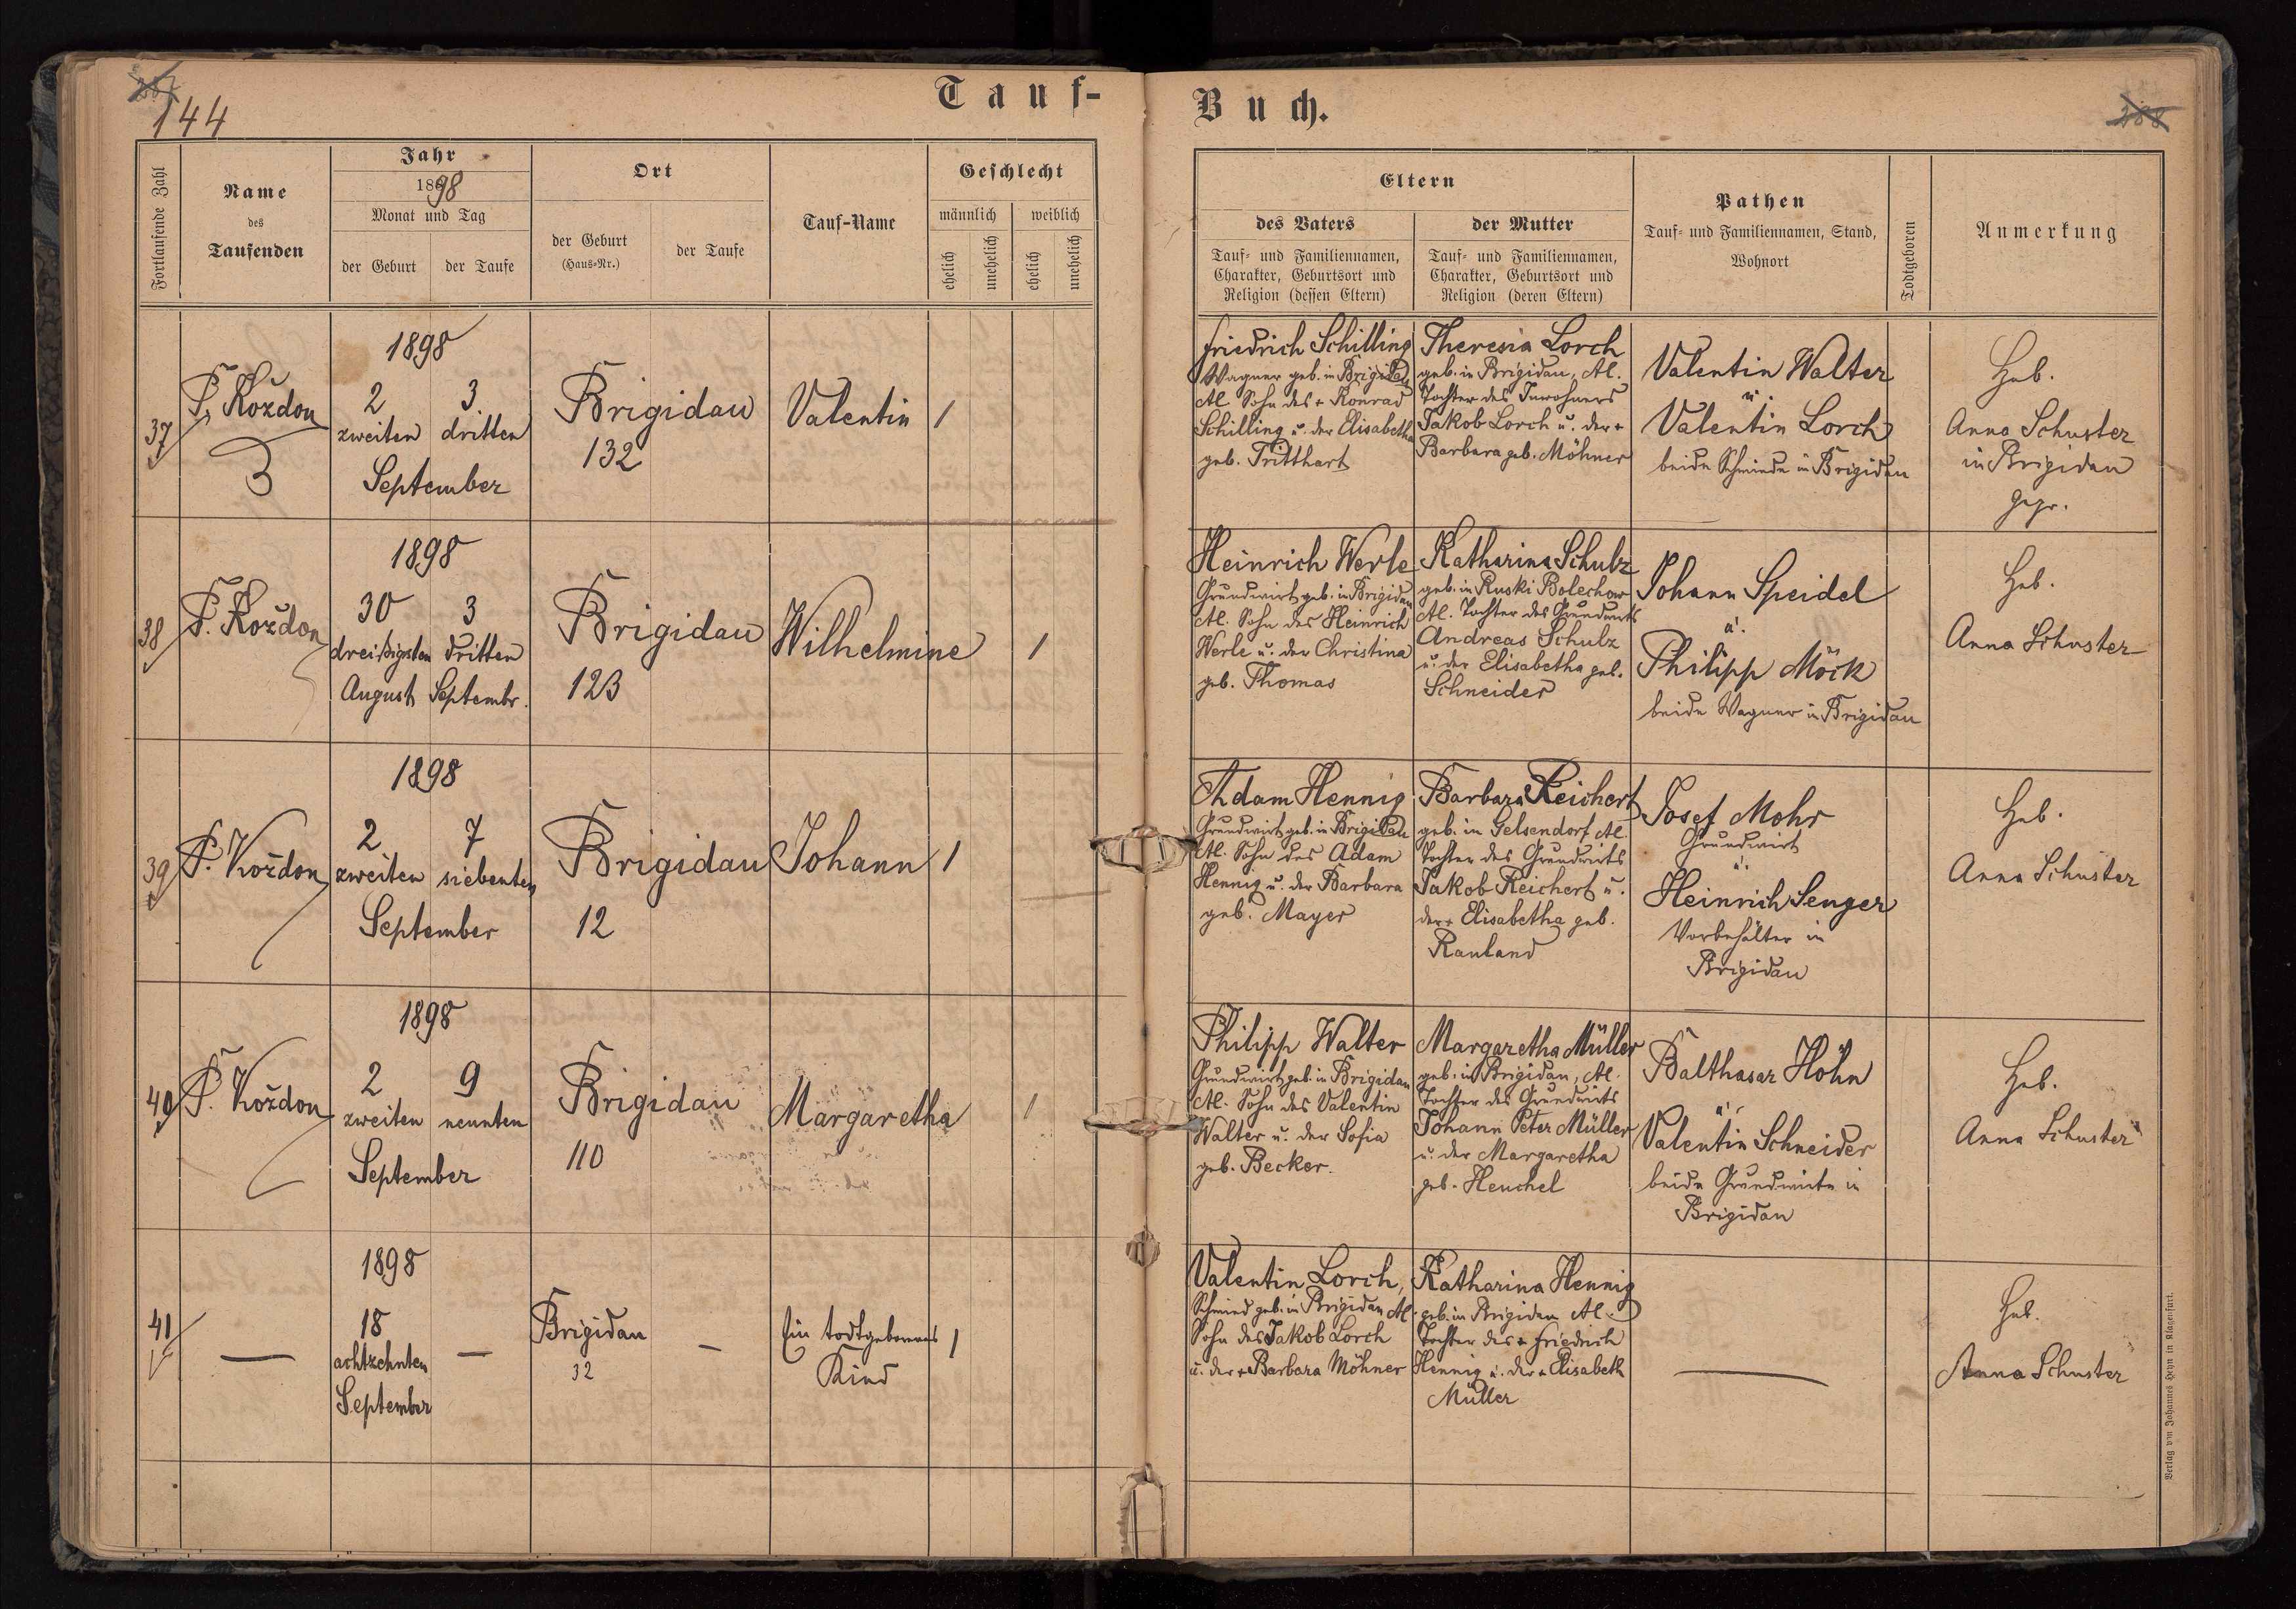 144
Tauf-
Buch.
Fortlaufende Zahl
Name
des
Taufenden
Jahr
1898
Monat und Tag
der Geburt
der Taufe
Ort
der Geburt
(Haus-Nr.)
der Taufe
Tauf-Name
Geschlecht
männlich
weiblich
ehelich
unehelich
ehelich
unehelich
Eltern
des Vaters
Tauf- und Familiennamen,
Charakter, Geburtsort und
Religion (dessen Eltern)
der Mutter
Tauf- und Familiennamen,
Charakter, Geburtsort und
Religion (deren Eltern)
Pathen
Tauf- und Familiennamen, Stand,
Wohnort
Todtgeboren
Anmerkung
37
P. Kożdon
1898
2
zweiten
3
dritten
September
Brigidau
132
Valentin
1
Friedrich Schilling
Wagner geb. in Brigidau
Al. Sohn des + Konrad
Schilling u. der Elisabetha
geb. Tritthart
Theresia Lorch
geb. in Brigidau, Al.
Tochter des Inwohners
Jakob Lorch u. der +
Barbara geb. Möhner
Valentin Walter
u.
Valentin Lorch
beide Schmiede in Brigidau
Heb.
Anna Schuster
in Brigidau
gepr.
38
P. Kożdon
1898
30
dreißigsten
August
3
dritten
Septembr.
Brigidau
123
Wilhelmine
1
Heinrich Werle
Grundwirt geb. in Brigidau
Al. Sohn des Heinrich
Werle u. der Christina
geb. Thomas
Katharina Schulz
geb. in Ruski Bolechow
Al. Tochter des Grundwirts
Andreas Schulz
u. der Elisabetha geb.
Schneider
Johann Speidel
u.
Philipp Möck
beide Wagner in Brigidau
Heb.
Anna Schuster
39
P. Kożdon
1898
2
zweiten
7
siebenten
September
Brigidau
12
Johann
1
Adam Hennig
Grundwirt geb. in Brigidau
Al. Sohn des Adam
Hennig u. der Barbara
geb. Mayer
Barbara Reichert
geb. in Gelsendorf Al.
Tochter des Grundwirts
Jakob Reichert u.
der + Elisabetha geb.
Rauland
Josef Mohr
Grundwirt
u.
Heinrich Senger
Vorbehälter in
Brigidau
Heb.
Anna Schuster
40
P. Kożdon
1898
2
zweiten
9
neunten
September
Brigidau
110
Margaretha
1
Philipp Walter
Grundwirt geb. in Brigidau
Al. Sohn des Valentin
Walter u. der Sofia
geb. Becker.
Margaretha Müller
geb. in Brigidau, Al.
Tochter des Grundwirts
Johann Peter Müller
u. der Margaretha
geb. Henchel
Balthasar Höhn
u.
Valentin Schneider
beide Grundwirte in
Brigidau
Heb.
Anna Schuster
41
—
1898
18
achtzehnten
September
—
Brigidau
32
—
Ein todtgeborenes
Kind
1
Valentin Lorch,
Schmied geb. in Brigidau Al.
Sohn des Jakob Lorch
u. der + Barbara Möhner
Katharina Hennig
geb. in Brigidau Al.
Tochter des + Friedrich
Hennig u. der + Elisabeth
Müller
—
Heb.
Anna Schuster
Verlag von Johannes Heyn in Klagenfurt.